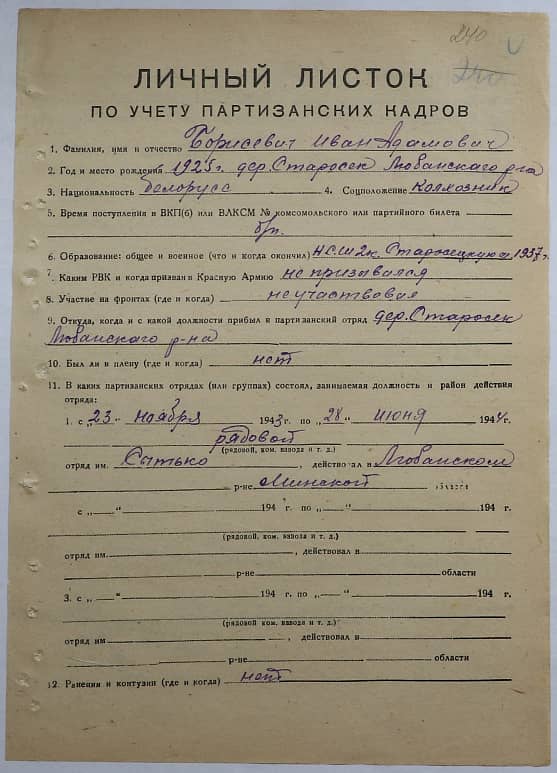 240
ЛИЧНЫЙ ЛИСТОК
ПО УЧЕТУ ПАРТИЗАНСКИХ КАДРОВ
1. Фамилия, имя и отчество Борисевич Иван Адамович
2. Год и место рождения 1925 г. дер. Старосек Любанского р-на
3. Национальность белорусс 4. Соцположение колхозник
5. Время поступления в ВКП(б) или ВЛКСМ № комсомольского или партийного билета
б/п.
6. Образование: общее и военное (что и когда окончил) 1937 г.
7. Каким РВК и когда призван в Красную Армию не призывался
8. Участие на фронтах (где и когда) не участвовал
9. Откуда, когда и с какой должности прибыл в партизанский отряд дер. Старосек
Любанского р-на
10. Был ли в плену (где и когда) нет
11. В каких партизанских отрядах (или группах) состоял, занимаемая должность и район действия
отряда:
1. с „23" ноября 1943 г. по „28" июня 1944 г.
рядовой
(рядовой, ком. взвода и т. д.)
отряд им. Сытько, действовал в Любанском
р-не Минской области
с „—" 194 г. по „—" 194 г.
(рядовой, ком. взвода и т. д.)
отряд им. , действовал в
р-не области
3. с „—" 194 г. по „—" 194 г.
(рядовой, ком. взвода и т. д.)
отряд им. , действовал в
р-не области
12. Ранения и контузии (где и когда) нет